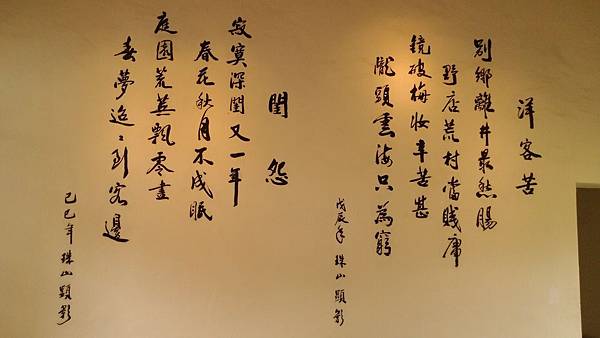 洋客苦
別鄉離井最愁腸
野店荒村當賤庸
鏡破梅妝辛苦甚
隴頭雲海只為窮
戊辰年 珠山顯影
閨怨
寂寞深閨又一年
春花秋月不成眠
庭園荒蕪飄零盡
春夢迢迢到客邊
己巳年 珠山顯影